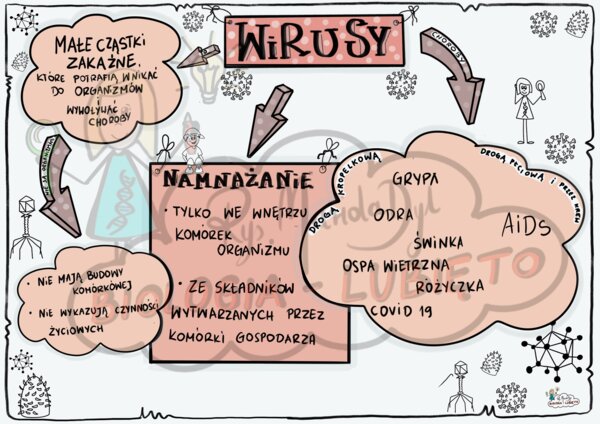 WiRUSY
MAŁE CZĄSTKI
ZAKAŹNE,
KTÓRE POTRAFIĄ WNIKAĆ
DO ORGANIZMÓW
I
WYWOŁYWAĆ
CHOROBY
• NIE MAJĄ BUDOWY
KOMÓRKOWEJ
• NIE WYKAZUJĄ CZYNNOŚCI
ŻYCIOWYCH
NAMNAŻANIE
• TYLKO WE WNĘTRZU
KOMÓREK
ORGANIZMU
• ZE SKŁADNIKÓW
WYTWARZANYCH PRZEZ
KOMÓRKI GOSPODARZA
CHOROBY
DROGĄ KROPELKOWĄ
GRYPA
ODRA
ŚWINKA
OSPA WIETRZNA
RÓŻYCZKA
COVID 19
DROGĄ PŁCIOWĄ I PRZEZ KREW
AiDS
BIOLOGIA - LUBIĘ TO